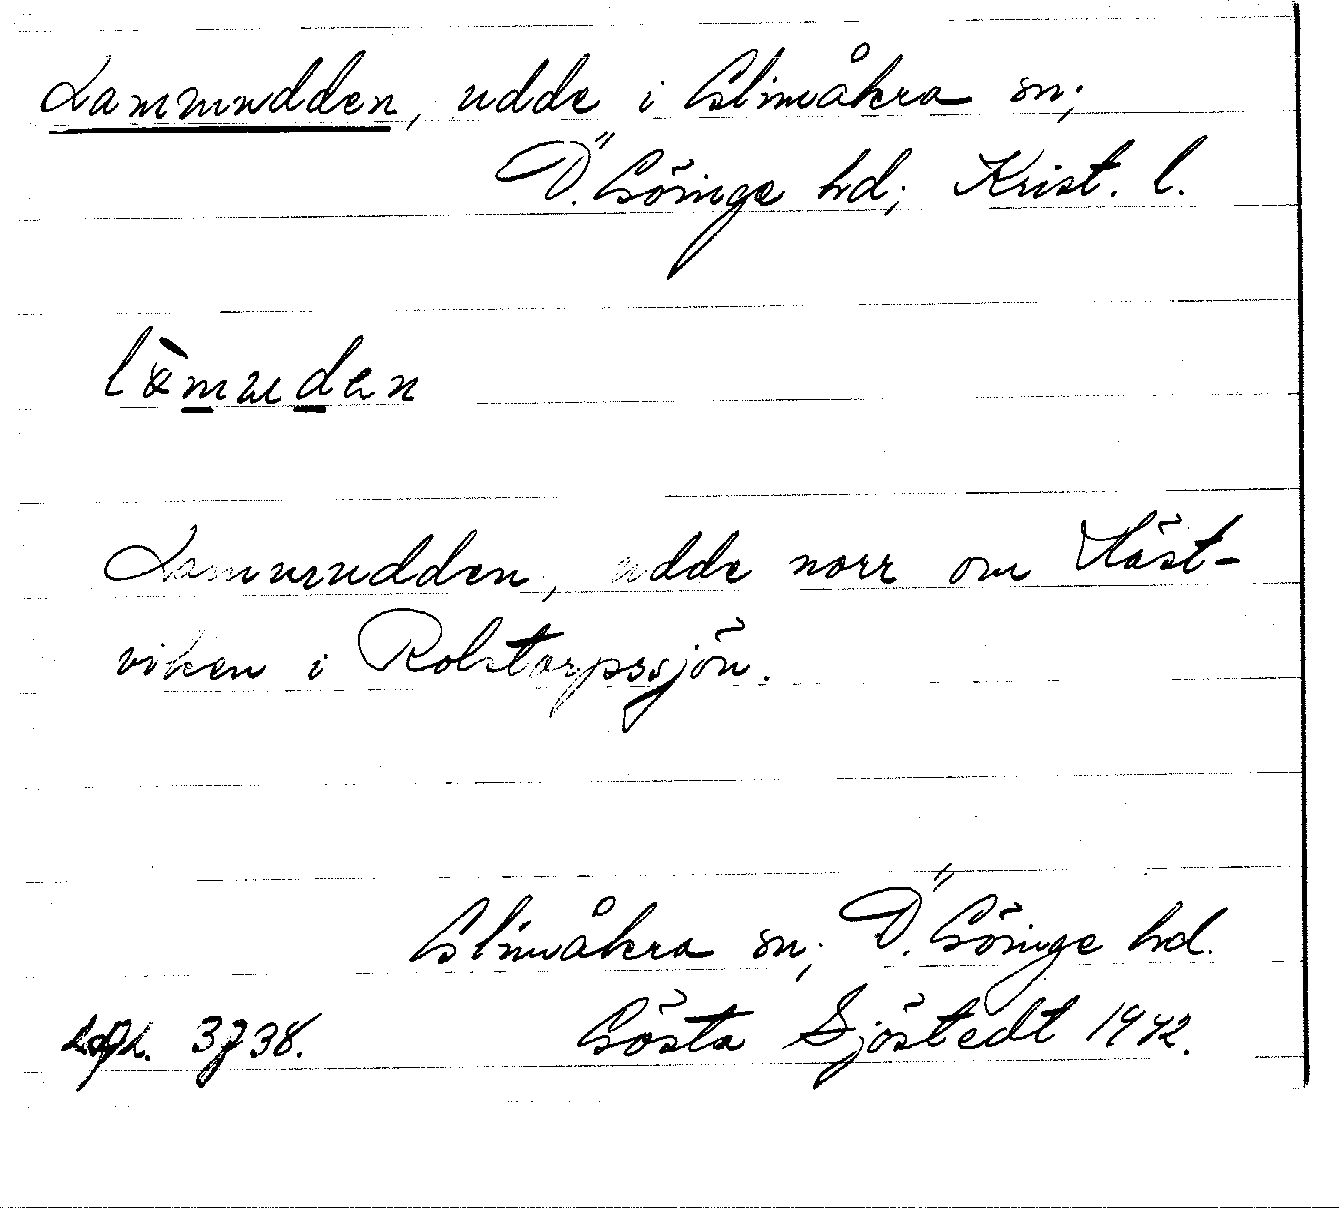 Lammudden, udde i Glimåkra sn;
Ö. Göinge hd; Krist. l.
làmuden
Lammudden, udde norr om Häst-
viken i Rolstorpssjön.
Glimåkra sn; Ö. Göinge hd.
3738. Gösta Sjöstedt 1942.